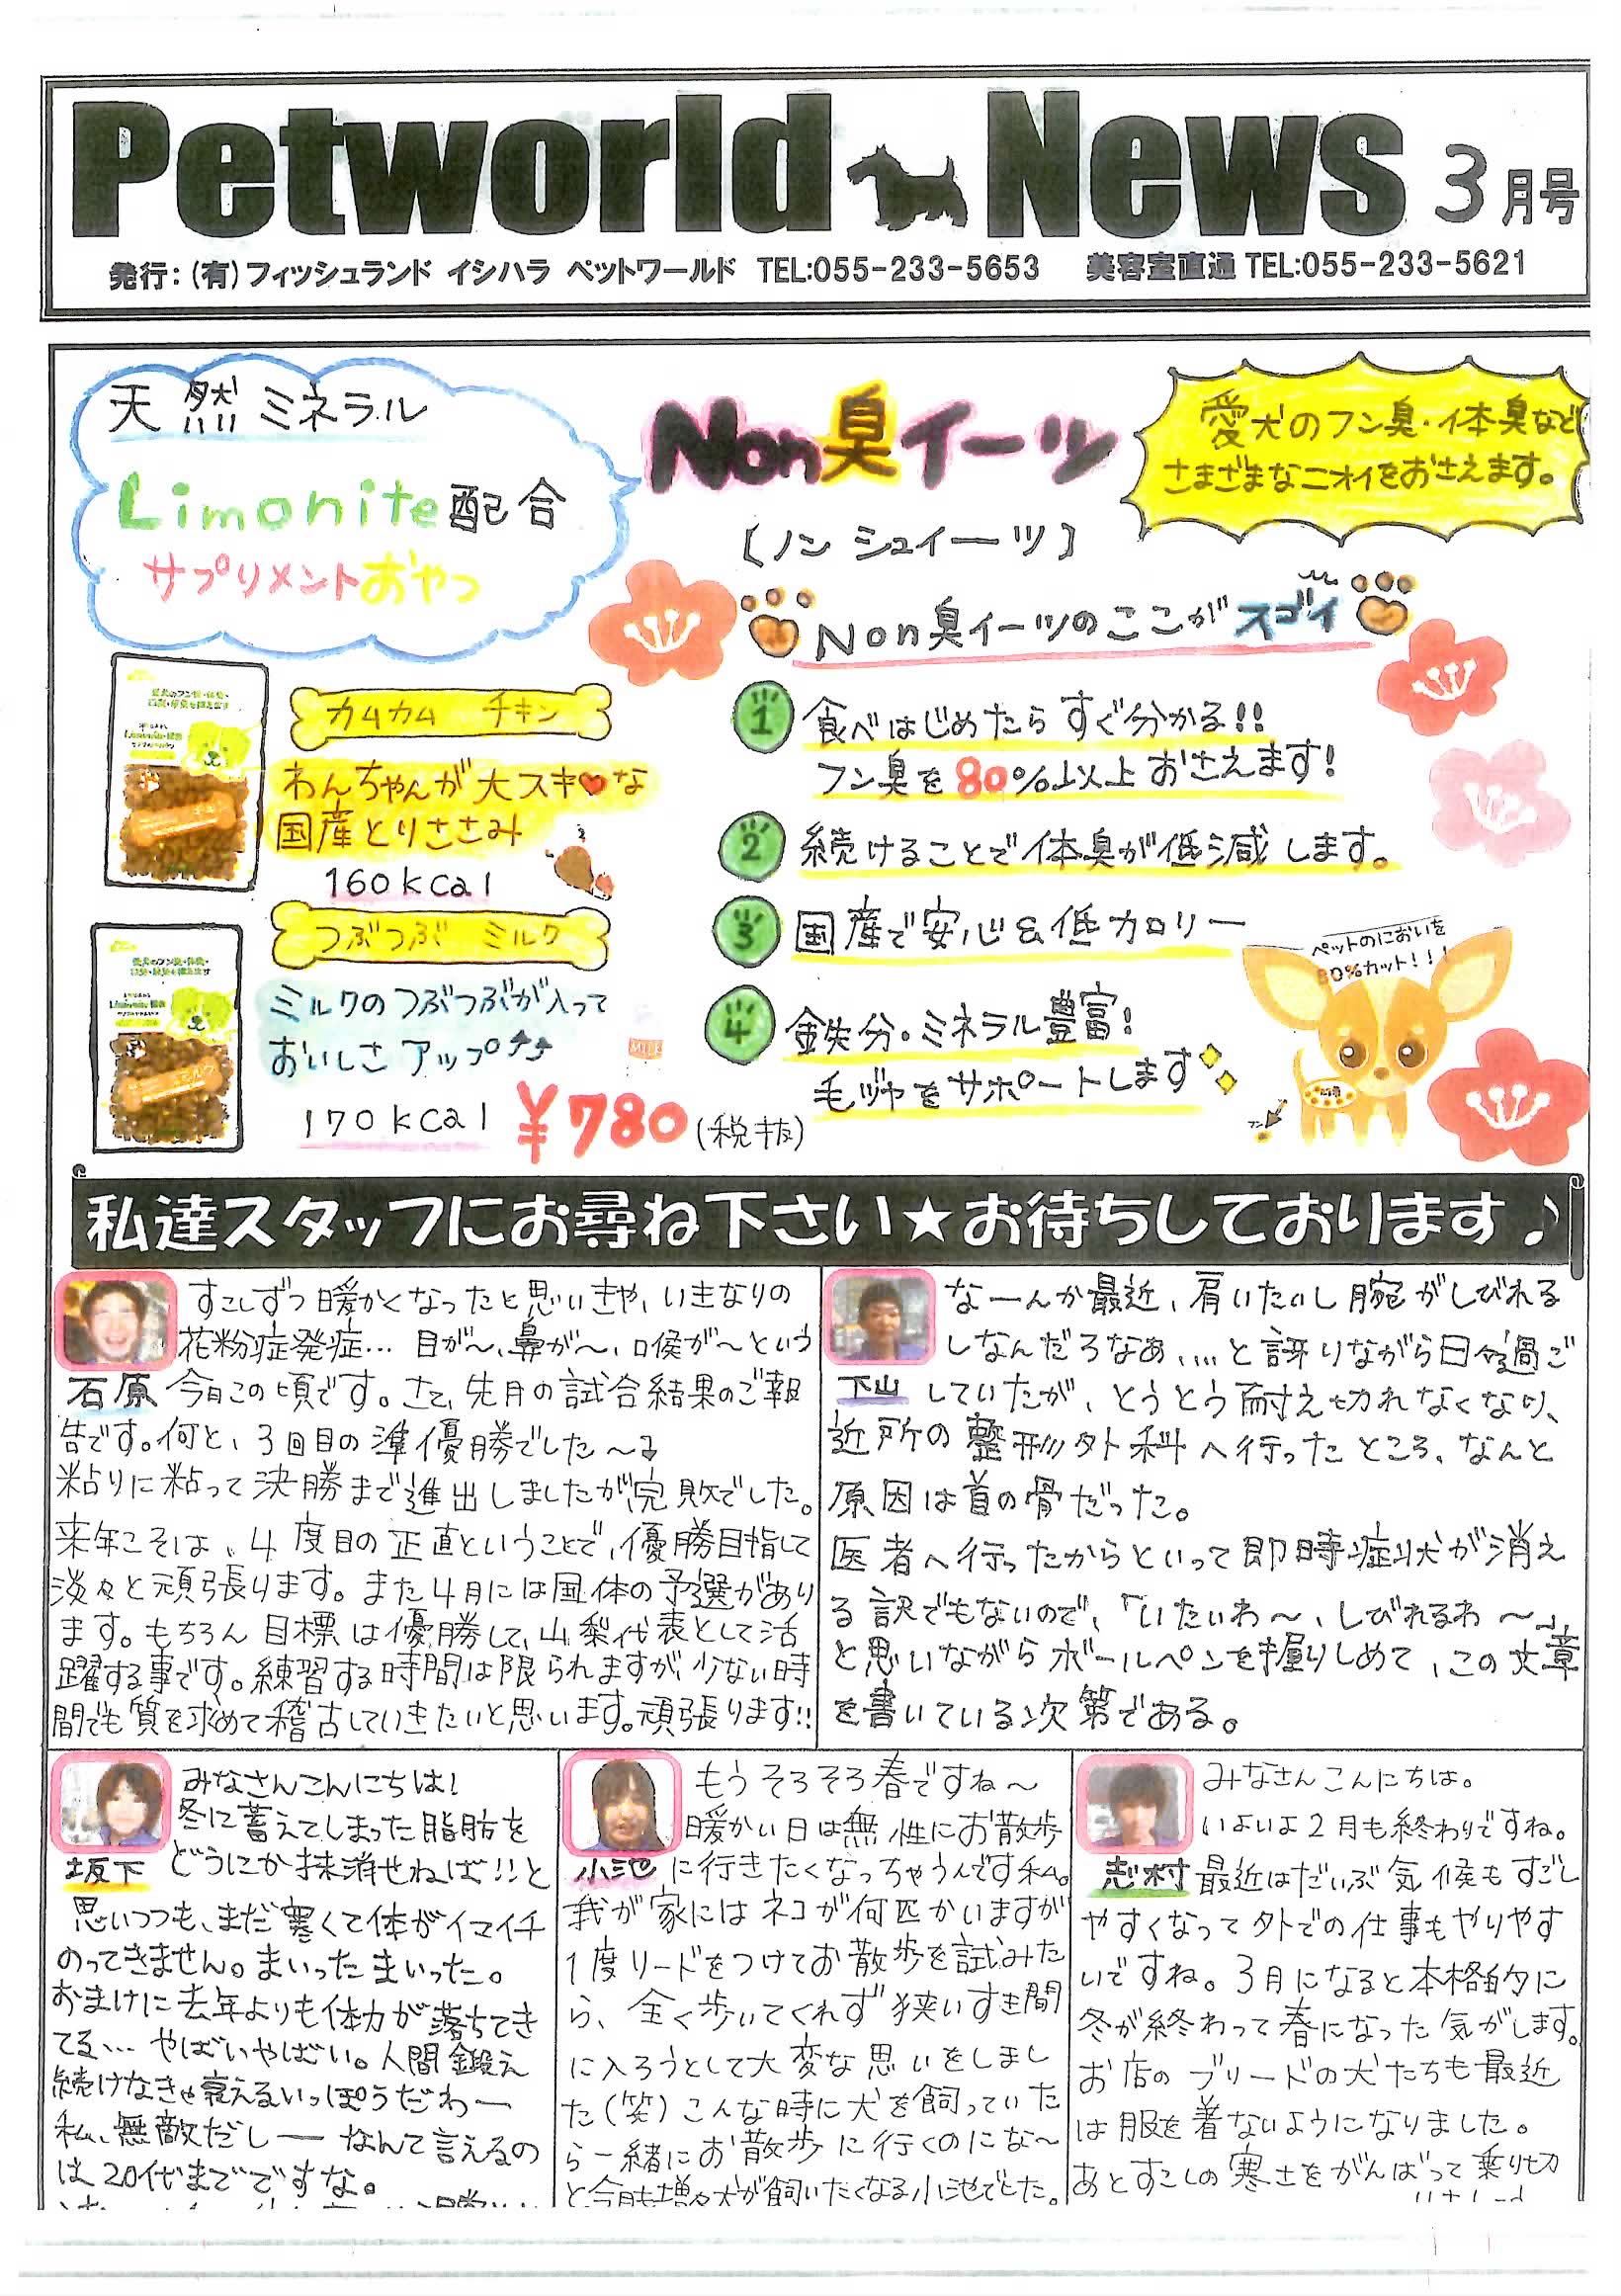 Petworld News 3月号
発行：(有)フィッシュランド イシハラ ペットワールド TEL:055-233-5653 美容室直通 TEL:055-233-5621
天然ミネラル
Limonite配合
サプリメントおやつ
Non臭イーツ
〔ノン シュイーツ〕
愛犬のフン臭・体臭など
さまざまなニオイをおさえます。
Non臭イーツのここがスゴイ
カムカム チキン
わんちゃんが大スキ♥な
国産とりささみ
160kcal
つぶつぶ ミルク
ミルクのつぶつぶが入って
おいしさアップ
170kcal
¥780(税抜)
1 食べはじめたらすぐ分かる!!
フン臭を80%以上おさえます!
2 続けることで体臭が低減します。
3 国産で安心&低カロリー
4 鉄分・ミネラル豊富!
毛ヅヤをサポートします
ペットのにおいを
80%カット!!!
フン
私達スタッフにお尋ね下さい★お待ちしております♪
すこしずつ暖かくなったと思いきや、いきなりの
花粉症発症… 目が〜、鼻が〜、喉が〜という
石原 今日この頃です。さて、先月の試合結果のご報
告です。何と、3回目の準優勝でした〜
粘りに粘って決勝まで進出しましたが、完敗でした。
来年こそは、4度目の正直ということで、優勝目指して
淡々と頑張ります。また4月には国体の予選があり
ます。もちろん目標は優勝して、山梨代表として活
躍する事です。練習する時間は限られますが、少ない時
間でも質を求めて稽古していきたいと思います。頑張ります!!
なーんか最近、肩いたいし腕がしびれる
しなんだろなあ、…と訝りながら日々過ご
下山 していたが、とうとう耐え切れなくなり、
近所の整形外科へ行ったところ、なんと
原因は首の骨だった。
医者へ行ったからといって即時症状が消え
る訳でもないので、「いたいわ〜、しびれるわ〜」
と思いながらボールペンを握りしめて、この文章
を書いている次第である。
みなさんこんにちは!
冬に蓄えてしまった脂肪を
坂下 どうにか抹消せねば!!と
思いつつも、まだ寒くて体がイマイチ
のってきません。まいったまいった。
おまけに去年よりも体力が落ちてき
てる… やばいやばい。人間鍛え
続けなきゃ衰えるいっぽうだわー
私、無敵だしー なんて言えるの
は20代までですな。
もうそろそろ春ですね〜
暖かい日は無性にお散歩
小池 に行きたくなっちゃうんです私。
我が家にはネコが何匹かいますが
1度リードをつけてお散歩を試みた
ら、全く歩いてくれず狭いすき間
に入ろうとして大変な思いをしまし
た(笑)こんな時に犬を飼っていた
ら一緒にお散歩に行くのにな〜
と今月も増々犬が飼いたくなる小池でした。
みなさんこんにちは。
いよいよ2月も終わりですね。
志村 最近はだいぶ気候もすごし
やすくなって外での仕事もやりやす
いですね。3月になると本格的に
冬が終わって春になった気がします。
お店のブリードの犬たちも最近
は服を着ないようになりました。
あとすこしの寒さをがんばって乗り切